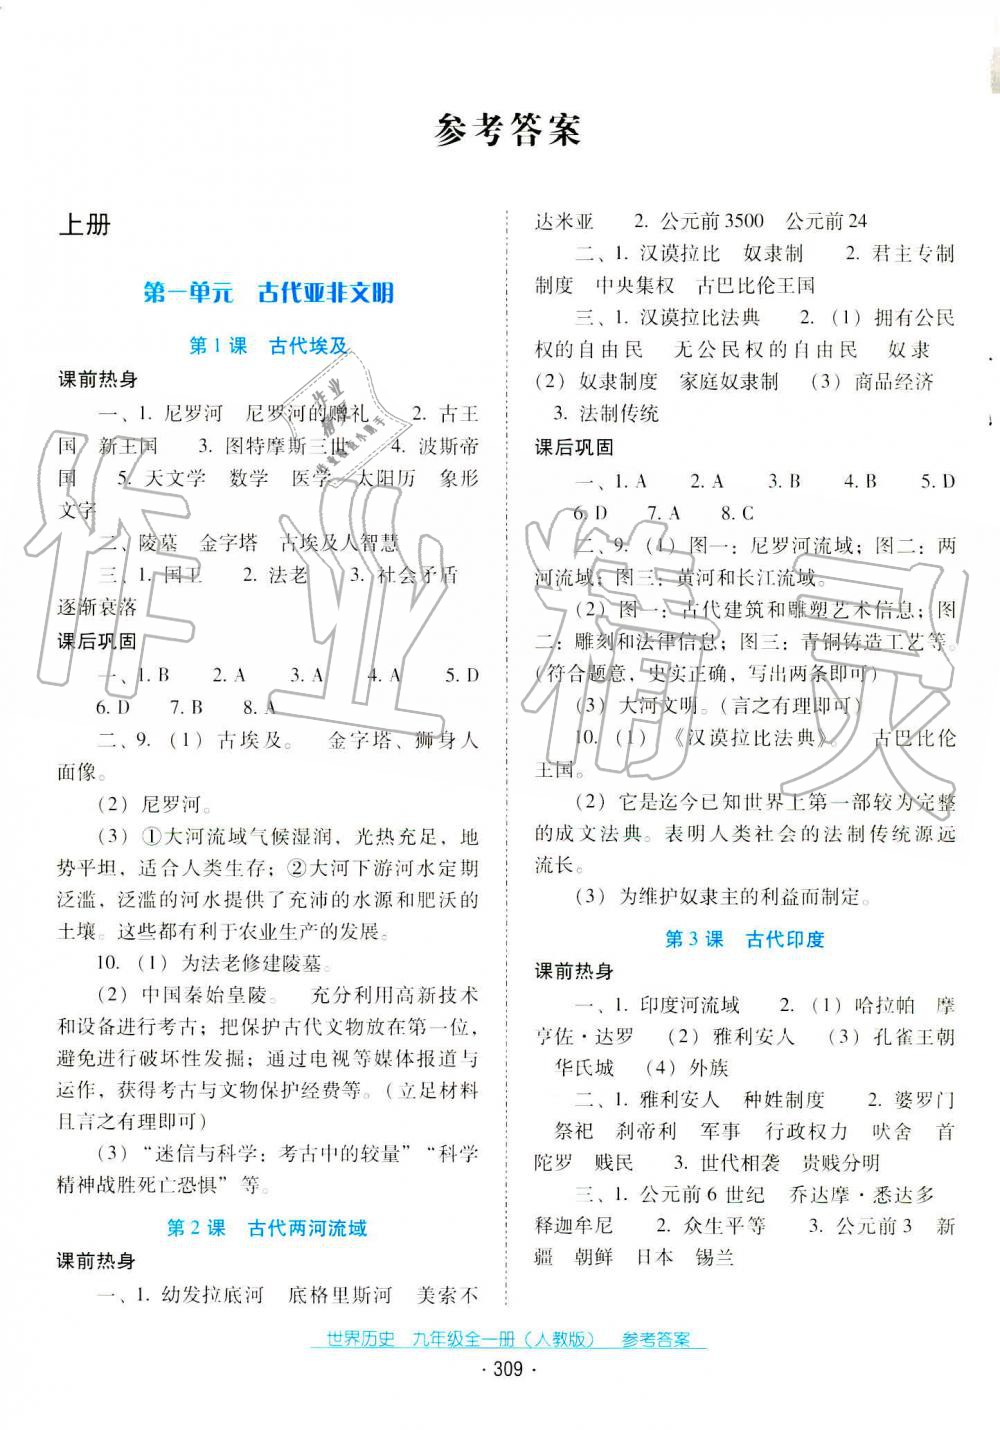 参考答案
上册
第一单元　古代亚非文明
第1课　古代埃及
课前热身
一、1. 尼罗河　尼罗河的赠礼　2. 古王
国　新王国　3. 图特摩斯三世　4. 波斯帝
国　5. 天文学　数学　医学　太阳历　象形
文字
二、陵墓　金字塔　古埃及人智慧
三、1. 国王　2. 法老　3. 社会矛盾
逐渐衰落
课后巩固
一、1. B　2. A　3. A　4. A　5. D
6. D　7. B　8. A
二、9.（1）古埃及。　金字塔、狮身人
面像。
（2）尼罗河。
（3）①大河流域气候湿润，光热充足，地
势平坦，适合人类生存；②大河下游河水定期
泛滥，泛滥的河水提供了充沛的水源和肥沃的
土壤。这些都有利于农业生产的发展。
10.（1）为法老修建陵墓。
（2）中国秦始皇陵。　充分利用高新技术
和设备进行考古；把保护古代文物放在第一位，
避免进行破坏性发掘；通过电视等媒体报道与
运作，获得考古与文物保护经费等。（立足材料
且言之有理即可）
（3）“迷信与科学：考古中的较量”“科学
精神战胜死亡恐惧”等。
第2课　古代两河流域
课前热身
一、1. 幼发拉底河　底格里斯河　美索不
达米亚　2. 公元前3500　公元前24
二、1. 汉谟拉比　奴隶制　2. 君主专制
制度　中央集权　古巴比伦王国
三、1. 汉谟拉比法典　2.（1）拥有公民
权的自由民　无公民权的自由民　奴隶
（2）奴隶制度　家庭奴隶制　（3）商品经济
3. 法制传统
课后巩固
一、1. A　2. A　3. B　4. B　5. D
6. D　7. A　8. C
二、9.（1）图一：尼罗河流域；图二：两
河流域；图三：黄河和长江流域。
（2）图一：古代建筑和雕塑艺术信息；图
二：雕刻和法律信息；图三：青铜铸造工艺等。
（符合题意，史实正确，写出两条即可）
（3）大河文明。（言之有理即可）
10.（1）《汉谟拉比法典》。　古巴比伦
王国。
（2）它是迄今已知世界上第一部较为完整
的成文法典。表明人类社会的法制传统源远
流长。
（3）为维护奴隶主的利益而制定。
第3课　古代印度
课前热身
一、1. 印度河流域　2.（1）哈拉帕　摩
亨佐·达罗　（2）雅利安人　（3）孔雀王朝
华氏城　（4）外族
二、1. 雅利安人　种姓制度　2. 婆罗门
祭祀　刹帝利　军事　行政权力　吠舍　首
陀罗　贱民　3. 世代相袭　贵贱分明
三、1. 公元前6世纪　乔达摩·悉达多
释迦牟尼　2. 众生平等　3. 公元前3　新
疆　朝鲜　日本　锡兰
世界历史　九年级全一册（人教版）　参考答案
· 309 ·
作业精灵